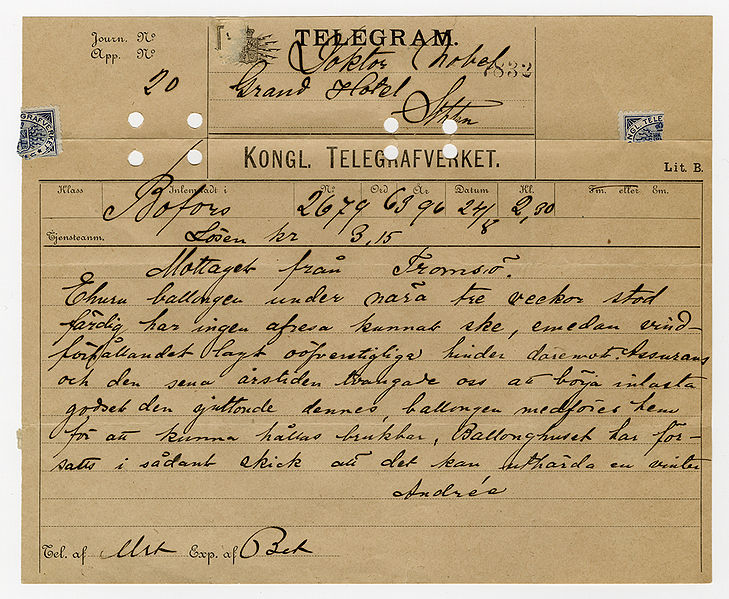 Journ. Nº
App. Nº
20
TELEGRAM.
Doktor Nobel
1832
Grand Hotel
Sthlm
KONGL. TELEGRAFVERKET.
Lit. B.
Klass Inlemnadt i Nº Ord År Datum Kl. Fm. eller Em.
Bofors 2679 63 96 24/8 2,30
Tjensteanm. Lösen kr 3,15
Mottaget från Tromsö.
Ehuru ballongen under nära tre veckor stod
färdig har ingen afresa kunnat ske, emedan vind-
förhållandet lagt oöfverstigliga hinder däremot. Assurans
och den sena årstiden tvangade oss att börja inlasta
godset den sjuttonde dennes, ballongen medföres hem
för att kunna hållas brukbar, Ballonghuset har för-
satts i sådant skick att det kan uthärda en vinter
Andrée
Tel. af Urt Exp. af Bet